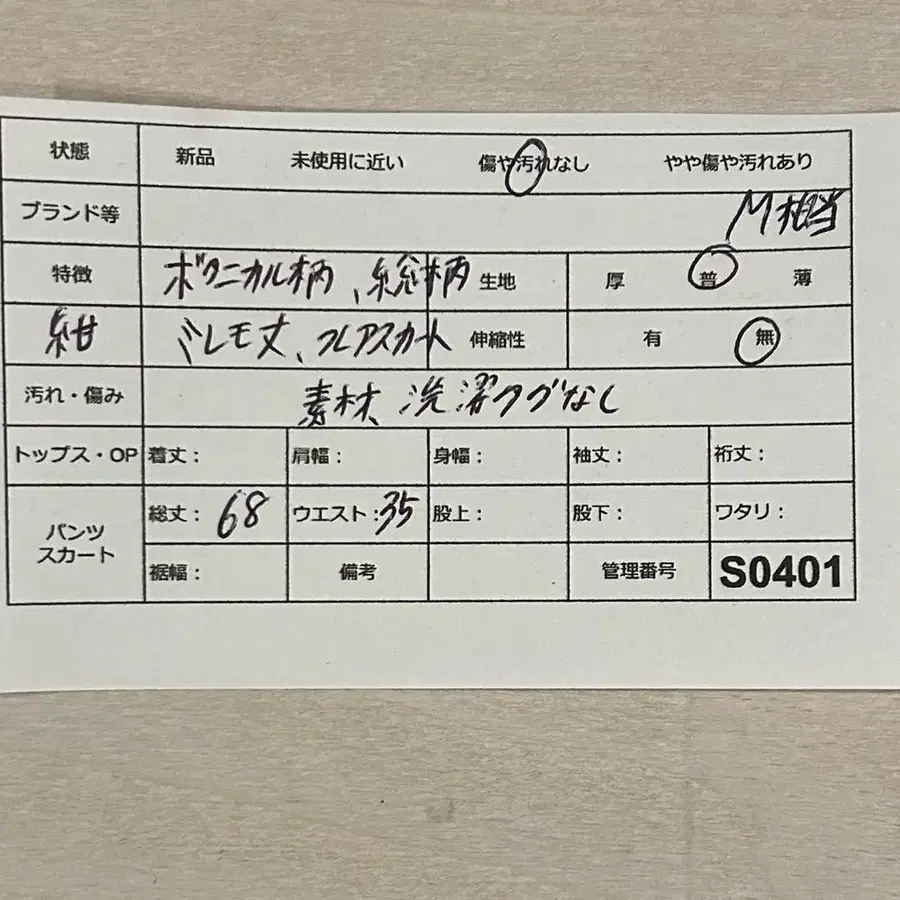 状態 新品 未使用に近い 傷や汚れなし やや傷や汚れあり
ブランド等 M相当
特徴 ボタニカル柄、総柄 生地 厚 普 薄
紺 ミレモ丈、フレアスカート 伸縮性 有 無
汚れ・傷み 素材、洗濯タグなし
トップス・OP 着丈: 肩幅: 身幅: 袖丈: 裄丈:
パンツ スカート 総丈:68 ウエスト:35 股上: 股下: ワタリ:
裾幅: 備考 管理番号 S0401